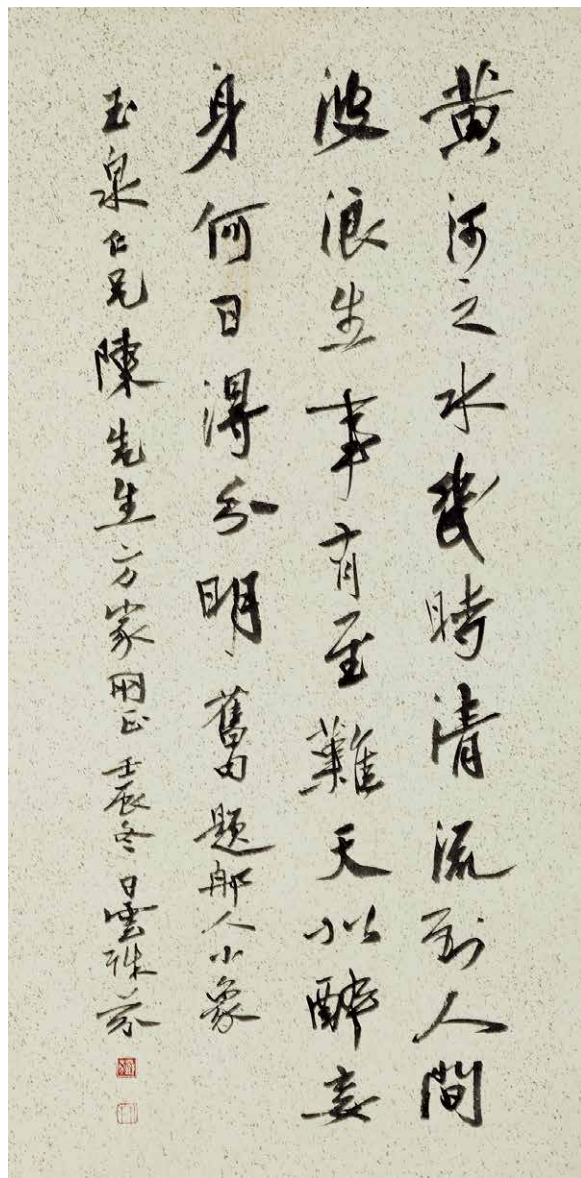 黃河之水幾時清流到人間
波浪生事有至難天似醉妾
身何日得分明舊題船人小象
玉泉仁兄陳先生方家正壬辰冬雲